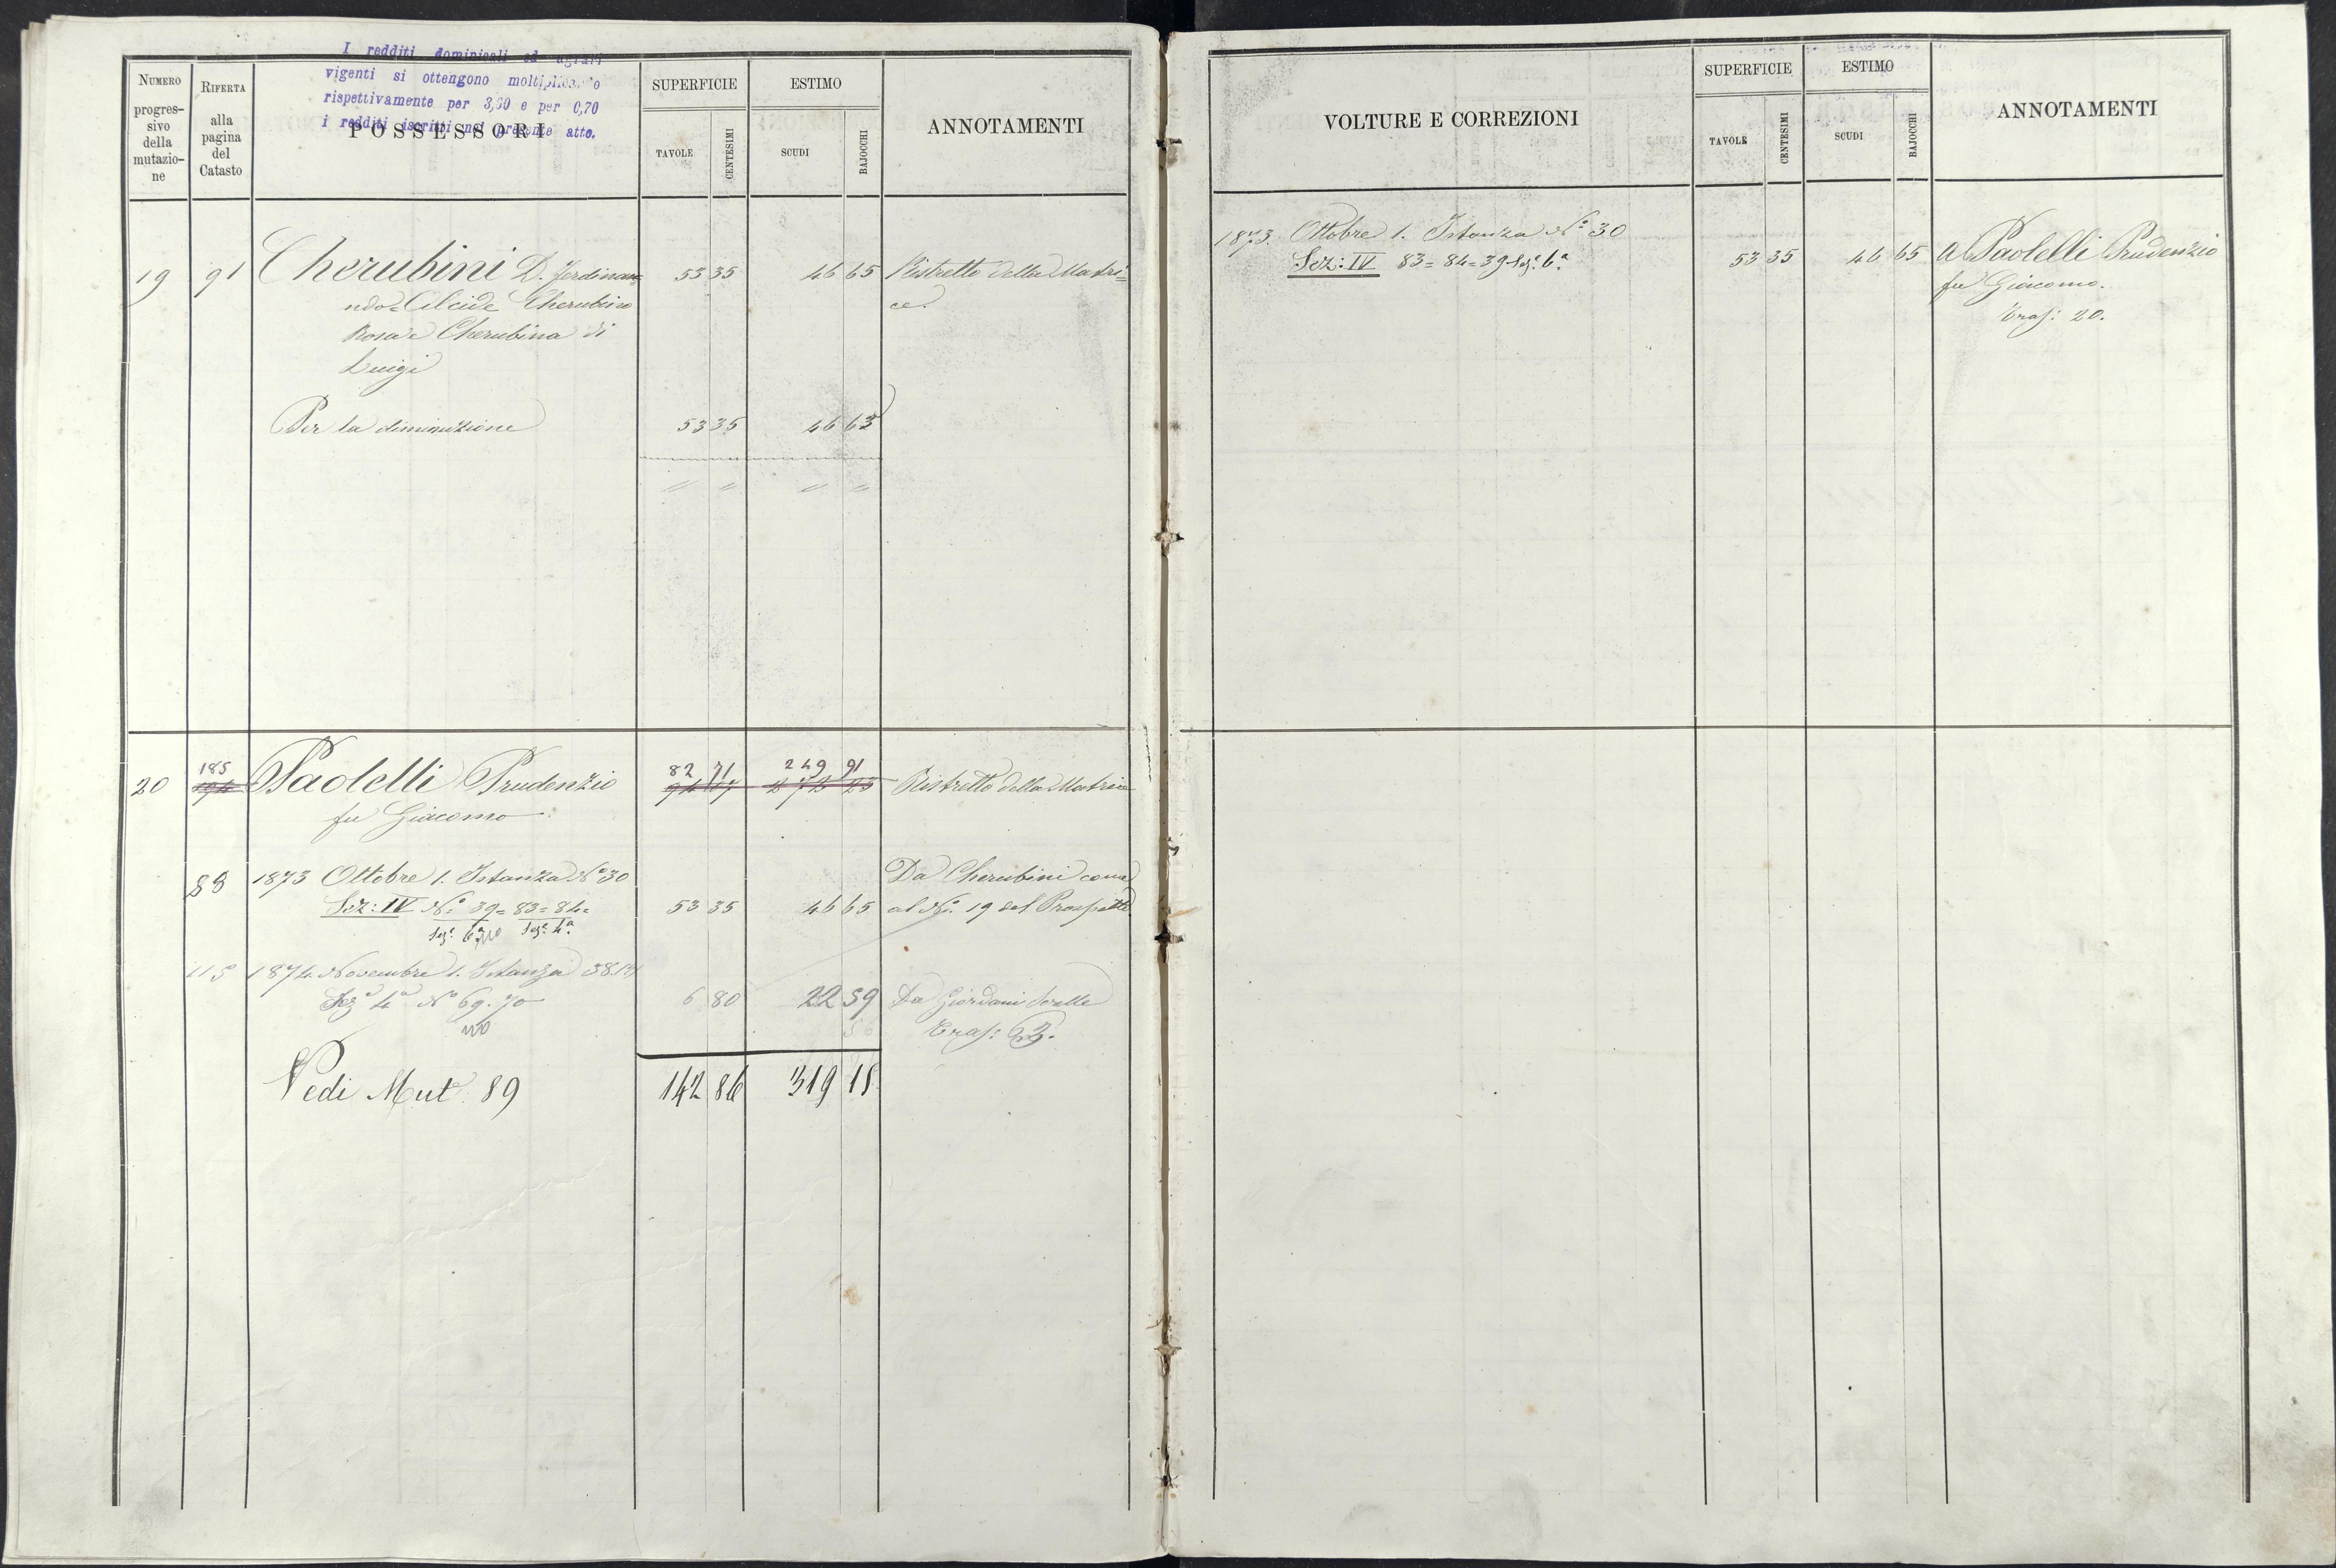 I redditi dominicali ed agrari
vigenti si ottengono moltiplicando
rispettivamente per 3,60 e per 0,70
i redditi iscritti nel presente atto.
NUMERO progres-sivo della mutazio-ne
RIFERTA alla pagina del Catasto
POSSESSORI
SUPERFICIE
TAVOLE
CENTESIMI
ESTIMO
SCUDI
BAJOCCHI
ANNOTAMENTI
19 91 Cherubini D. Ferdinan= 53 35 46 65 Ristretto della Matri=
ndo= Alcide Cherubino ce
Rosa e Cherubina di
Luigi
Per la diminuzione 53 35 46 65
" " " "
185 82 71 249 91
20 Paolelli Prudenzio Ristretto della Matrice
fu Giacomo
88 1873 Ottobre 1. Istanza N.° 30 Da Cherubini come
Sez: IV N.° 39= 83= 84= 53 35 46 65 al N.° 19 del Prospetto
Seze. 6.a no Seze. 4.a
115 1874 Novembre 1. Istanza 38.
Sez.e 4.a N.° 69. 70 6 80 22 59 Da Giordani
no Tras: 63.
Vedi Mut. 89 142 86 319 15
VOLTURE E CORREZIONI
SUPERFICIE
TAVOLE
CENTESIMI
ESTIMO
SCUDI
BAJOCCHI
ANNOTAMENTI
1873. Ottobre 1. Istanza N.° 30
Sez: IV 83= 84= 39 Sez.e 6.a 53 35 46 65 A Paolelli Prudenzio
fu Giacomo.
Tras: 20.